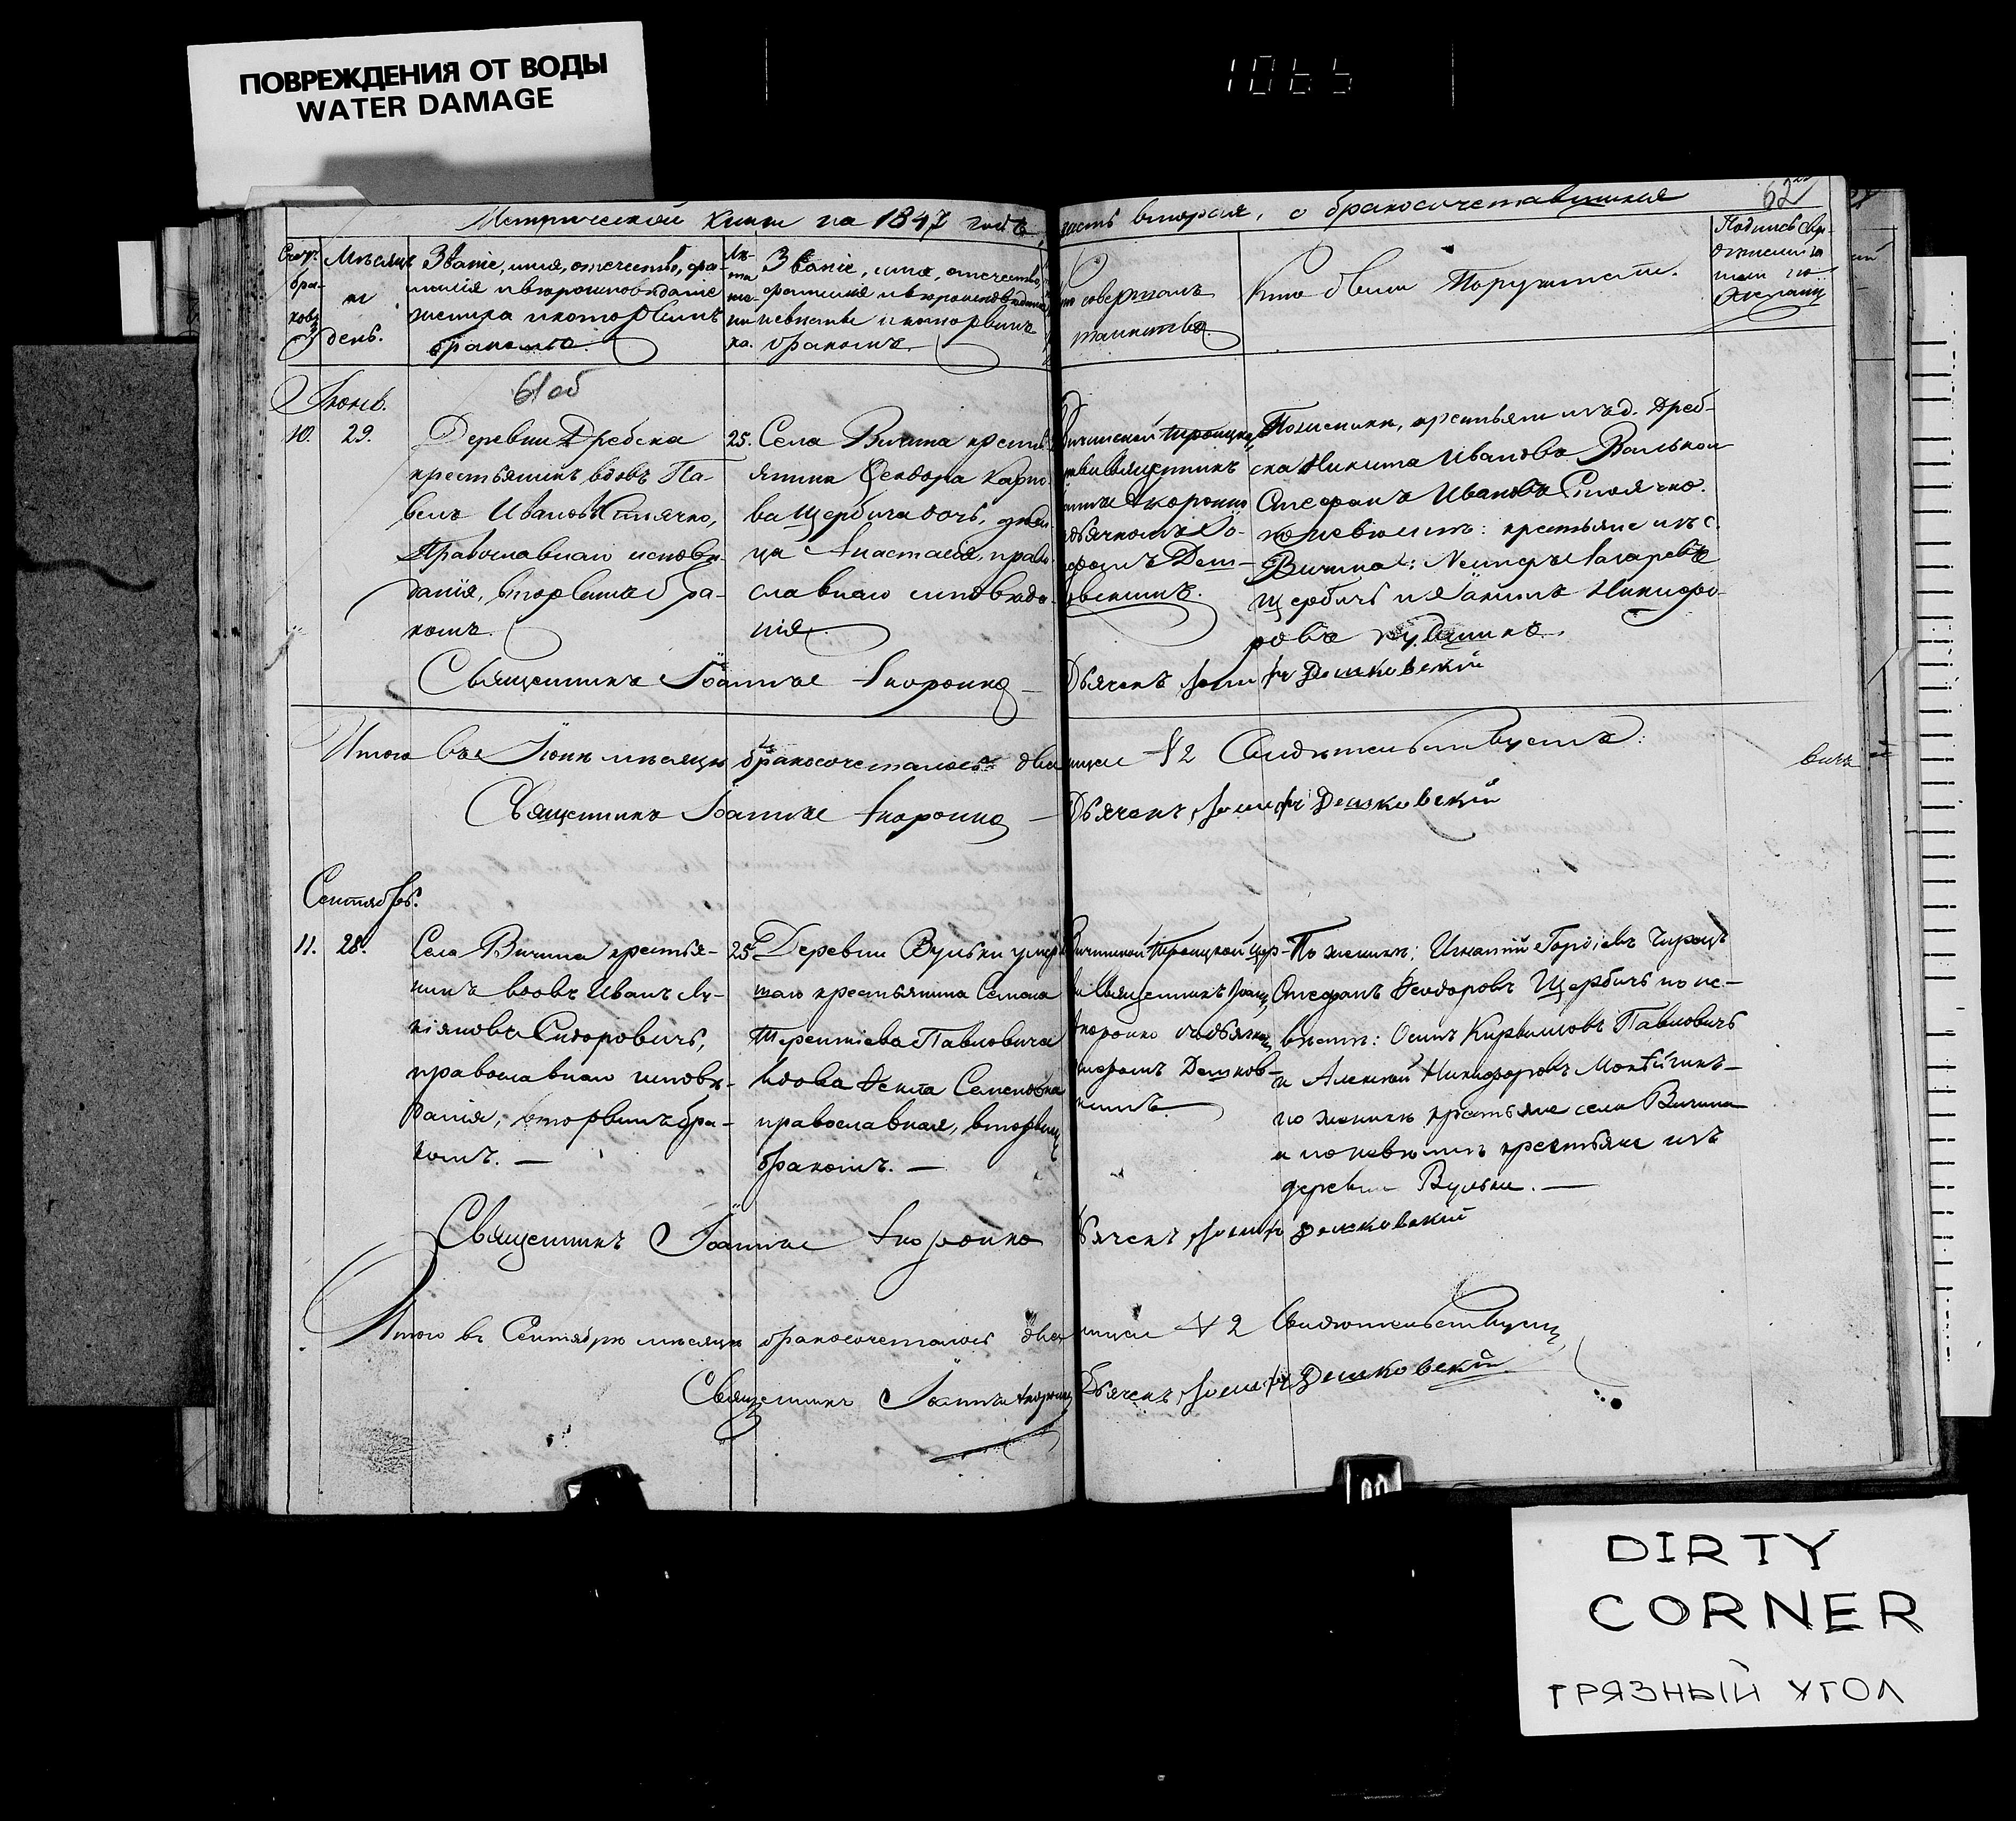 ПОВРЕЖДЕНИЯ ОТ ВОДЫ
WATER DAMAGE
1065
62
Метрической книги на 1847 годъ, часть вторая, о бракосочетавшихся
Счетъ браковъ
Мѣсяцъ и день.
Званіе, имя, отечество, фамилія и вѣроисповѣданіе жениха и которымъ бракомъ.
Лѣта жениха.
Званіе, имя, отечество, фамилія и вѣроисповѣданіе невѣсты и которымъ бракомъ.
Кто совершалъ таинство
Кто были Поручители.
Подпись свидѣтелей по желанію
61 об
Іюнь.
10. 29.
Деревни Дребска
крестьянинъ вдовъ Па-
велъ Ивановъ
Православнаго исповѣ-
данія, вторымъ бра-
комъ.
25.
Села Вичина кресть-
янина Феодора Карпо-
ва Щербича дочь, дѣви-
ца Анастасія, право-
славнаго исповѣда-
нія
Вичинской Троицкой
священникъ
Скоропко
съ дьячкомъ Іо-
сифомъ Деш-
ковскимъ.
По женихѣ, крестьяни изъ д. Дреб-
ска Никита Ивановъ
Стефанъ Ивановъ
по невѣстѣ: крестьяне изъ с.
Вичина: Лазаревъ
Щербичъ и Никифо-
ровъ
Священникъ Іоаннъ Скоропко Дьячекъ Іосифъ Дешковскій
Итого въ Іюнѣ мѣсяцѣ бракосочеталось двѣ 2 Свидѣтельствуемъ:
Священникъ Іоаннъ Скоропко Дьячекъ Іосифъ Дешковскій
Сентябрь.
11. 28.
Села Вичина крестья-
нинъ вдовъ Иванъ Лу-
кіяновъ Сидоровичъ,
православнаго исповѣ-
данія, вторымъ бра-
комъ. —
25.
Деревни Вульки умер-
шаго крестьянина Семена
Терентіева Павловича
вдова Фекла Семеновна
православная, вторымъ
бракомъ. —
Вичинской Троицкой цер-
кви Священникъ Іоаннъ
Скоропко съ дьячкомъ
Іосифомъ Дешков-
скимъ
По женихѣ: Игнатій
Стефанъ Феодоровъ Щербичъ по не-
вѣстѣ: Осипъ Кирыловъ Павловичъ
и Алексѣй Никифоровъ
по женихѣ крестьяне села Вичина
и по невѣстѣ крестьяне изъ
деревни Вульки. —
Священникъ Іоаннъ Скоропко Дьячекъ Іосифъ Дешковскій
Итого въ Сентябрѣ мѣсяцѣ бракосочеталось двѣ 2 Свидѣтельствуемъ
Священникъ Іоаннъ Скоропко Дьячекъ Іосифъ Дешковскій
DIRTY
CORNER
ГРЯЗНЫЙ УГОЛ